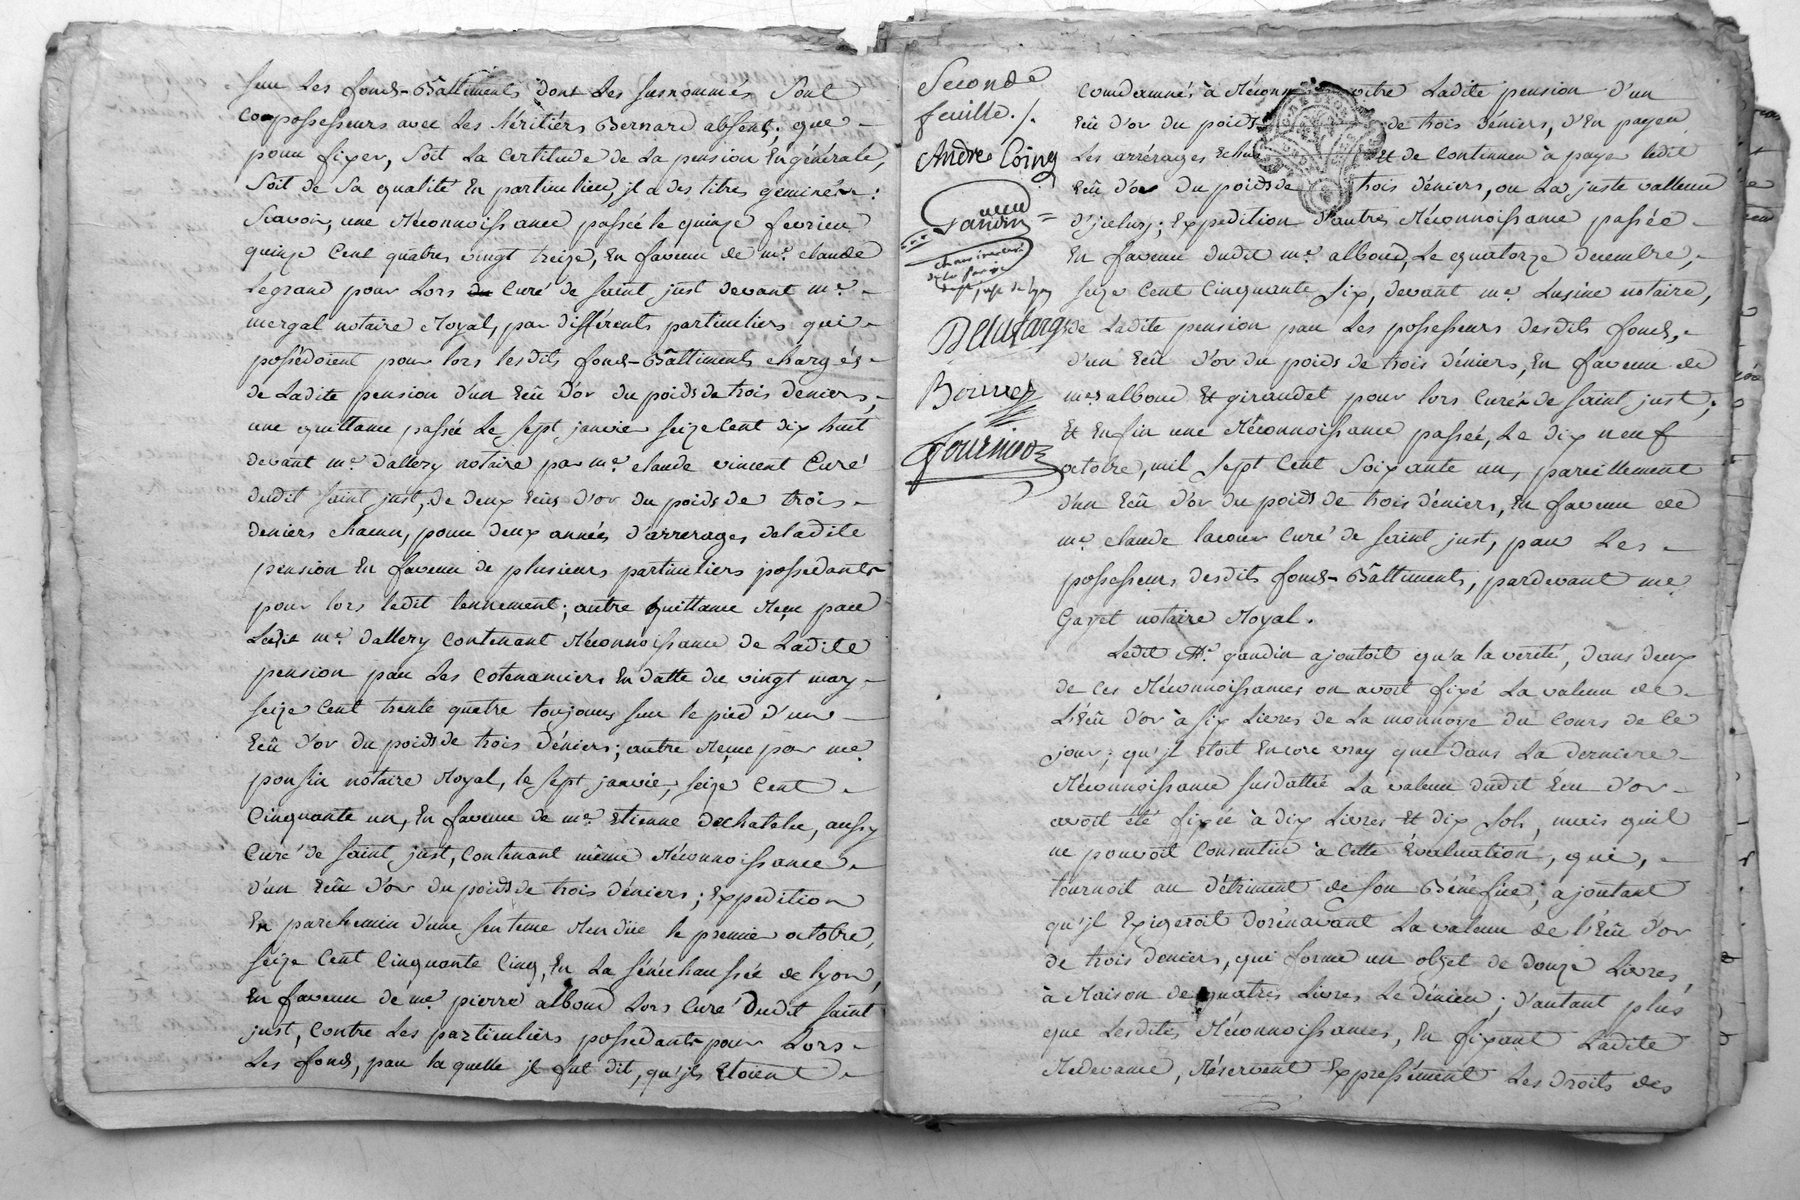 sur Les fonds-Bâttiments dont Les susnommés sont
copossesseurs avec Les héritiérs Bernard absents; que
pour fixer, soit La Certitude de La pension En générale,
soit de sa qualité En particulier, il a des titres geminés:
Scavoir, une Réconnoissance passée le quinze fevrier
quinze Cent quatres vingt treize, En faveur de me. claude
Legrand pour Lors Curé de saint just devant me.
mergal notaire Royal, par différents particuliers qui
possédoient pour lors lesdits fonds-Bâttiments chargés
de Ladite pension d'un Ecû d'or du poids de trois deniers,
une quittance passée Le sept janvier seize Cent dix huit
devant me. dallery notaire par me. claude vincent Curé
dudit saint just, de deux Ecus d'or du poids de trois
deniers chacun, pour deux années d'arrerages de ladite
pension En faveur de plusieurs particuliers possedants
pour lors ledit tennement; autre quittance Reçu par
Ledit me. dallery contenant Réconnoissance de Ladite
pension par Les Cotenanciers En datte du vingt mars
seize Cent trente quatre toujours sur le pied d'un
Ecû d'or du poids de trois déniers; autre Reçue par me.
ponsin notaire Royal, le sept janvier, seize Cent
Cinquante un, En faveur de me. Etienne duchatelu, aussy
Curé de saint just, Contenant même Réconnoissance
d'un Ecû d'or du poids de trois déniers; Expedition
En parchemin d'une sentence Renduë le premier octobre,
seize Cent Cinquante Cinq, En La sénéchaussée de lyon,
En faveur de me. pierre alboud Lors Curé Dudit saint
just, Contre Les particuliers possedants pour Lors
Les fonds, par la quelle il fut dit, qu'ils Etoient
Seconde
feuille./.
André Coing
Gandin
Boiron
Condamnés à Réconnoitre Ladite pension d'un
Ecû d'or du poids de trois déniers, d'En payer
Les arrérages Echus Et de Continuer à payer ledit
Ecû d'or du poids de trois déniers, ou La juste valleur
d'icelui; Expedition d'autres Réconnoissance passée
En faveur dudit me. alboud, Le quatorze decembre,
seize Cent Cinquante six, devant me. Lusine notaire,
de Ladite pension par Les possesseurs desdits fonds,
d'un Ecû d'or du poids de trois déniers, En faveur de
mes alboud Et giraudet pour lors Curé de saint just;
Et Enfin une Réconnoissance passée, Le dix neuf
octobre, mil sept Cent soixante un, pareillement
d'un Ecû d'or du poids de trois déniers, En faveur de
me. claude lacour Curé de saint just, par Les
possesseurs desdits fonds-Bâttiments, pardevant me.
Gayet notaire Royal.
Ledit me. gandin ajoutoit qu'a la verité, dans deux
de ces Réconnoissances on avoit fixé La valeur de
L'Ecû d'or à six Livres de La monnoye du Cours de Ce
jour; qu'il Etoit Encore vray que dans La derniere
Réconnoissance susdattée La valeur dudit Ecu d'or
avoit été fixée à dix Livres Et dix sols, mais qu'il
ne pouvoit Consentir à Cette Évaluation, qui,
tournoit au détriment de son Bénéfice; ajoutant
qu'il Exigeroit dorénavant La valeur de l'Ecû d'or
de trois deniers, qui forme un objet de douze Livres,
à Raison de quatres Livres Le dénier; d'autant plus
que Lesdites Réconnoissances, En fixant Ladite
Redevance, Réservent Expressément Les droits des